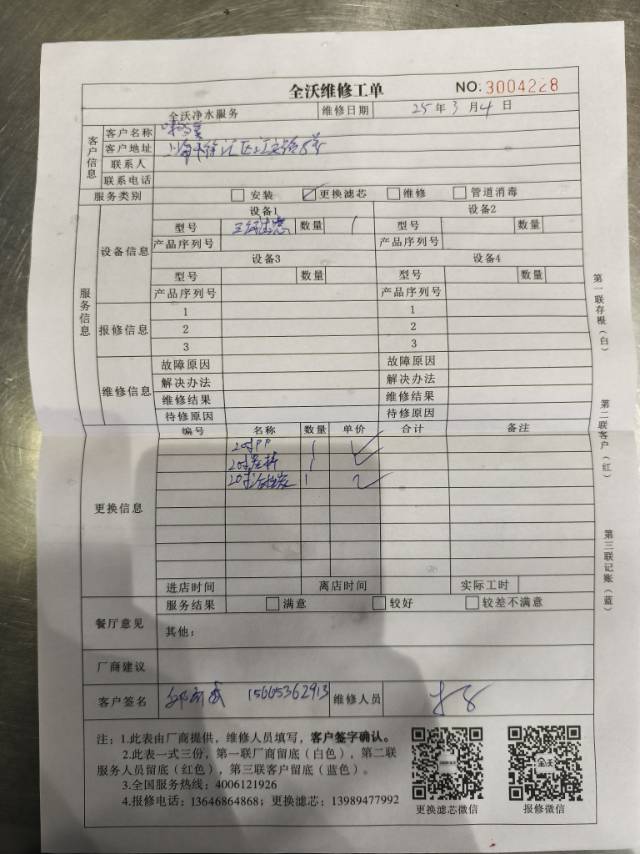 全沃维修工单
NO: 3004228
全沃净水服务 维修日期 25年3月4日
客户信息
客户名称
客户地址
联系人
联系电话
服务类别 安装 更换滤芯 维修 管道消毒
服务信息
设备信息
设备1 设备2
型号 三级滤芯 数量 1 型号 数量
产品序列号 产品序列号
设备3 设备4
型号 数量 型号 数量
产品序列号 产品序列号
报修信息
1 1
2 2
3 3
维修信息
故障原因 故障原因
解决办法 解决办法
维修结果 维修结果
待修原因 待修原因
更换信息
编号 名称 数量 单价 合计 备注
20寸PP 1
20寸 1
20寸活性炭 1
进店时间 离店时间 实际工时
餐厅意见
服务结果 满意 较好 较差不满意
其他:
厂商建议
客户签名 15665362913 维修人员
注:1.此表由厂商提供,维修人员填写,客户签字确认。
2.此表一式三份,第一联厂商留底(白色),第二联
服务人员留底(红色),第三联客户留底(蓝色)。
3.全国服务热线:4006121926
4.报修电话:13646864868;更换滤芯:13989477992
更换滤芯微信 报修微信
第一联存根(白)
第二联客户(红)
第三联记账(蓝)